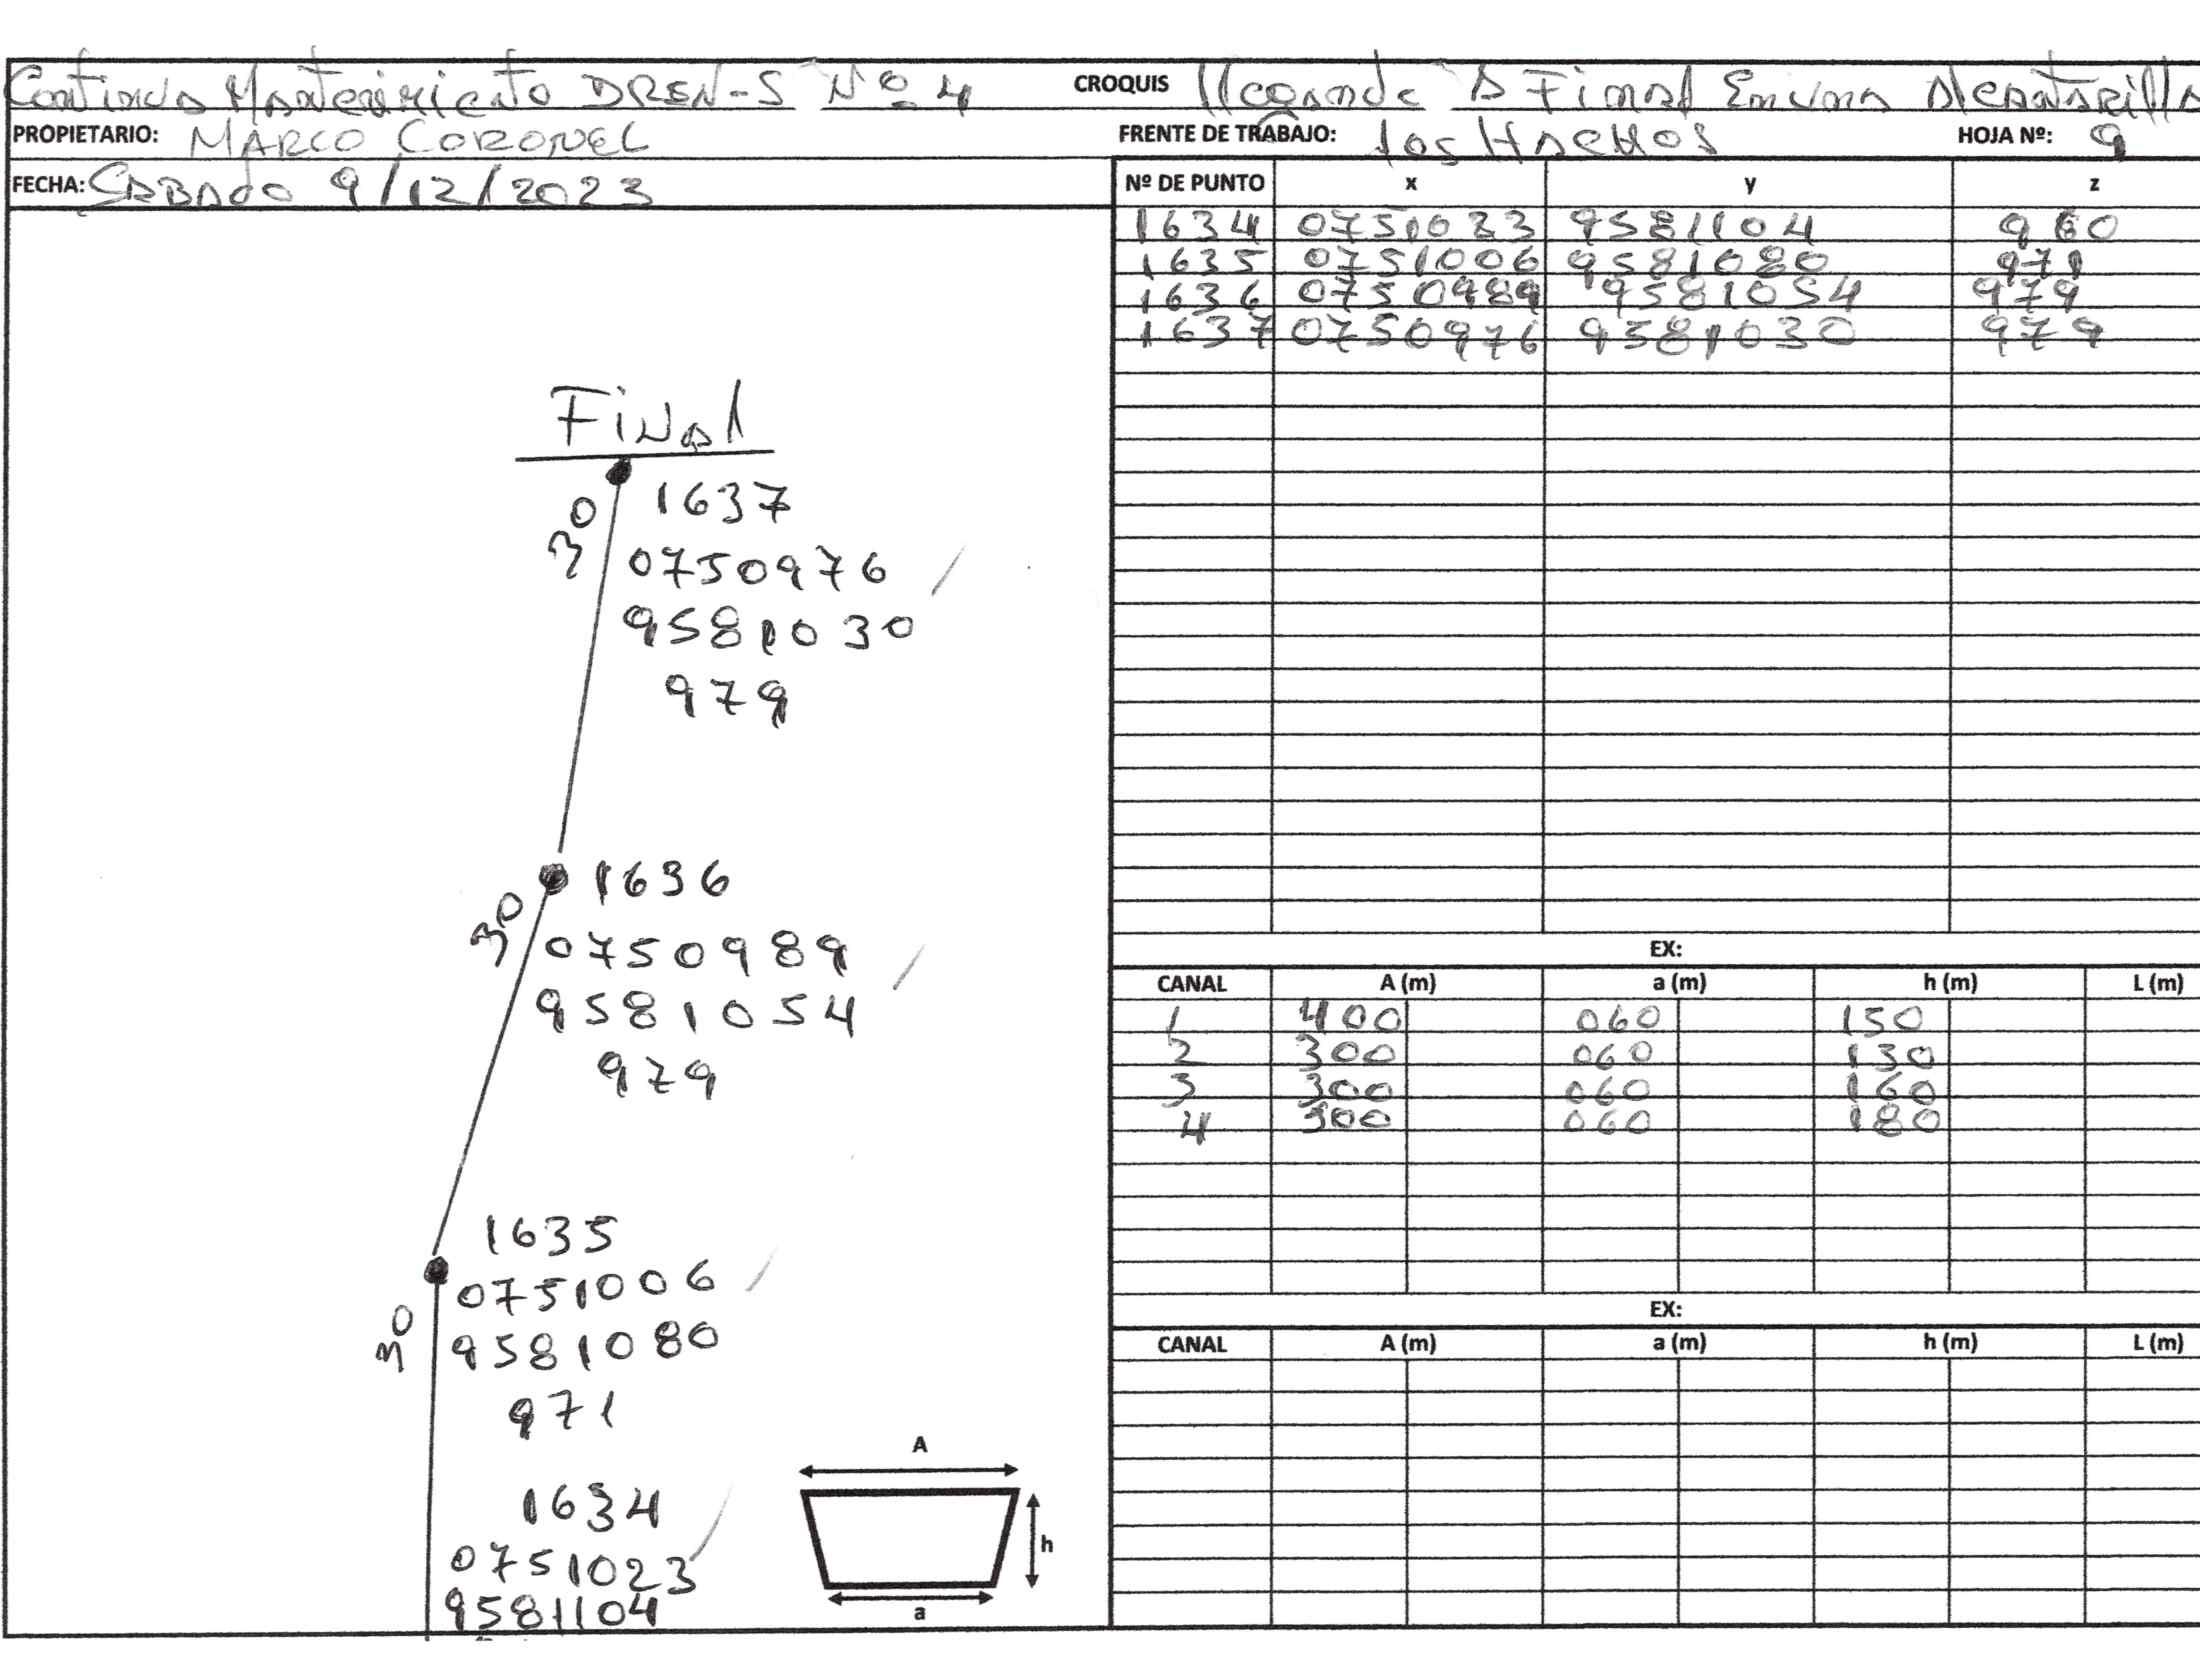 Continua Mantenimiento DREN-S Nº 4 CROQUIS llegando A Final En una Alcantarilla
PROPIETARIO: MARCO CORONEL FRENTE DE TRABAJO: los Hachos HOJA Nº: 9
FECHA: SABADO 9/12/2023
Nº DE PUNTO x y z
1634 0751023 9581104 960
1635 0751006 9581080 971
1636 0750989 9581054 979
1637 0750976 9581030 979
Final
1637
30
0750976
9581030
979
1636
30
0750989
9581054
979
1635
0751006
30
9581080
971
1634
0751023
9581104
A
h
a
EX:
CANAL A (m) a (m) h (m) L (m)
1 400 060 150
2 300 060 130
3 300 060 160
4 300 060 180
EX:
CANAL A (m) a (m) h (m) L (m)